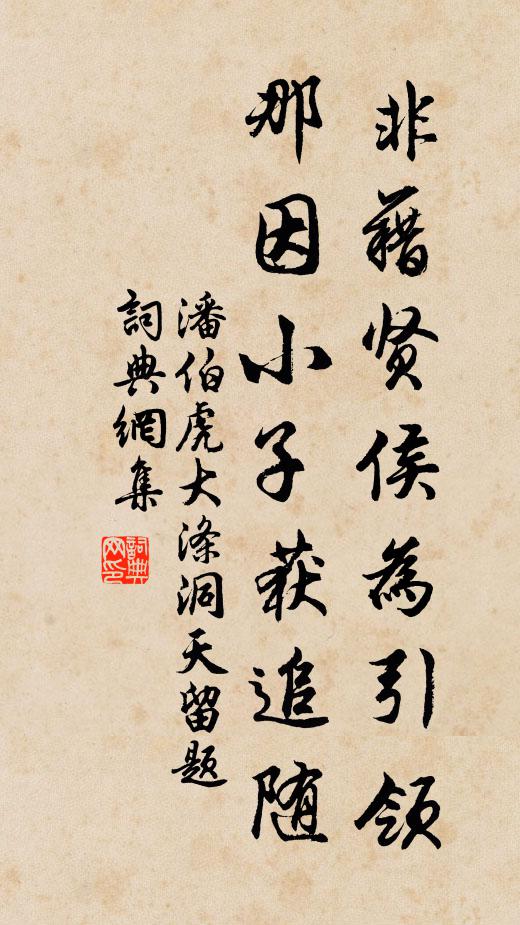 非藉贤侯為引领
那因小子获追随
潘伯虎大涤洞天留题
詞典網集
詞典网印